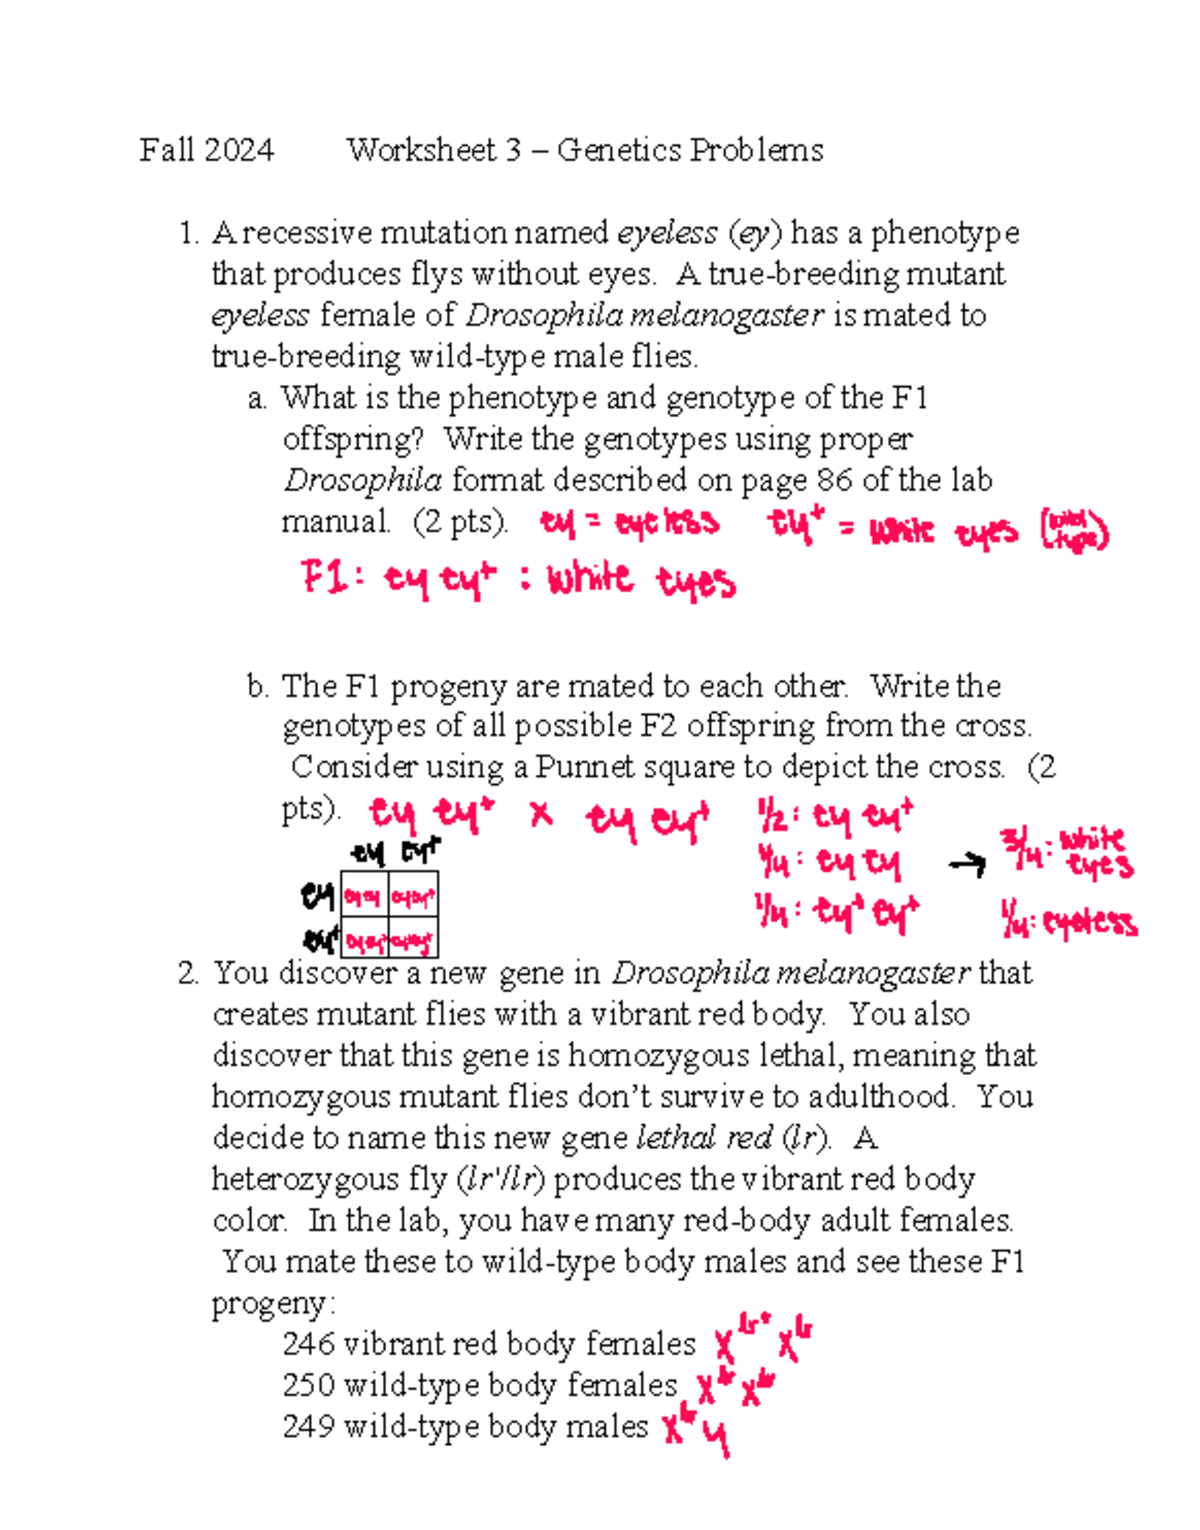 Fall 2024 Worksheet 3 – Genetics Problems
1. A recessive mutation named eyeless (ey) has a phenotype
that produces flys without eyes. A true-breeding mutant
eyeless female of Drosophila melanogaster is mated to
true-breeding wild-type male flies.
a. What is the phenotype and genotype of the F1
offspring? Write the genotypes using proper
Drosophila format described on page 86 of the lab
manual. (2 pts). ey = eyeless ey⁺ = white eyes (wild type)
F1: ey ey⁺ : white eyes
b. The F1 progeny are mated to each other. Write the
genotypes of all possible F2 offspring from the cross.
Consider using a Punnet square to depict the cross. (2
pts). ey ey⁺ x ey ey⁺ 1/2: ey ey⁺
ey ey⁺ 1/4: ey ey → 3/4: white eyes
ey ey ey ey ey⁺ 1/4: ey⁺ ey⁺ 1/4: eyeless
ey⁺ ey ey⁺ ey⁺ ey⁺
2. You discover a new gene in Drosophila melanogaster that
creates mutant flies with a vibrant red body. You also
discover that this gene is homozygous lethal, meaning that
homozygous mutant flies don’t survive to adulthood. You
decide to name this new gene lethal red (lr). A
heterozygous fly (lr'/lr) produces the vibrant red body
color. In the lab, you have many red-body adult females.
You mate these to wild-type body males and see these F1
progeny:
246 vibrant red body females X^lr⁺ X^lr
250 wild-type body females X X
249 wild-type body males X y